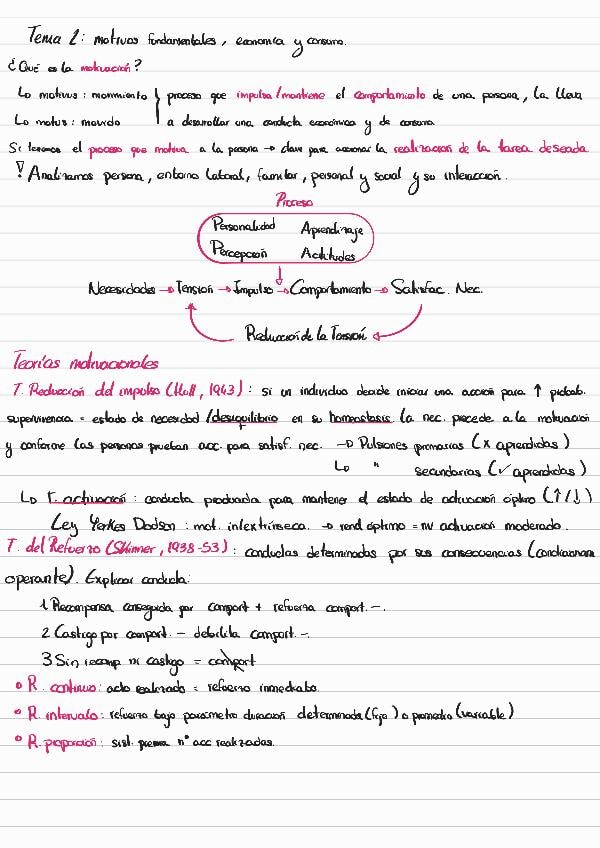 Tema 2: motivos fundamentales, economía y consumo.
¿Qué es la motivación?
↳ motivus: movimiento } proceso que impulsa/mantiene el comportamiento de una persona, la lleva
↳ motus: movido } a desarrollar una conducta económica y de consumo.
Si tenemos el proceso que motiva a la persona → clave para accionar la realización de la tarea deseada
! Analizamos persona, entorno laboral, familiar, personal y social y su interacción.
Proceso
Personalidad Aprendizaje
Percepción Actitudes
Necesidades → Tensión → Impulso → Comportamiento → Satisfac. Nec.
Reducción de la Tensión
Teorías motivacionales
T. Reducción del impulso (Hull, 1943): si un individuo decide iniciar una acción para ↑ probab.
supervivencia = estado de necesidad/desequilibrio en su homeostasis. La nec. precede a la motivación
y conforme las personas prueban acc. para satisf. nec. → Pulsiones primarias (x aprendidas)
↳ " secundarias (✓ aprendidas)
↳ T. activación: conducta producida para mantener el estado de activación óptimo (↑/↓)
Ley Yerkes Dodson: mot. int extrínseca. → rend óptimo = nv activación moderado.
T. del Refuerzo (Skinner, 1938-53): conductas determinadas por sus consecuencias (condicionam
operante). Explicar conducta:
1 Recompensa conseguida por comport + refuerza comport. -.
2 Castigo por comport. - debilita comport. -.
3 Sin recomp ni castigo = comport
• R. continuo: acto realizado = refuerzo inmediato.
• R. intervalo: refuerzo bajo parámetro duración determinada (fijo) o promedio (variable)
• R. proporción: sist. premia nº acc realizadas.